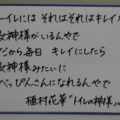 トイレには それはそれはキレイな
女神様がいるんやで
だから毎日 キレイにしたら
女神様みたいに
べっぴんさんになれるんやで
植村花菜「トイレの神様」